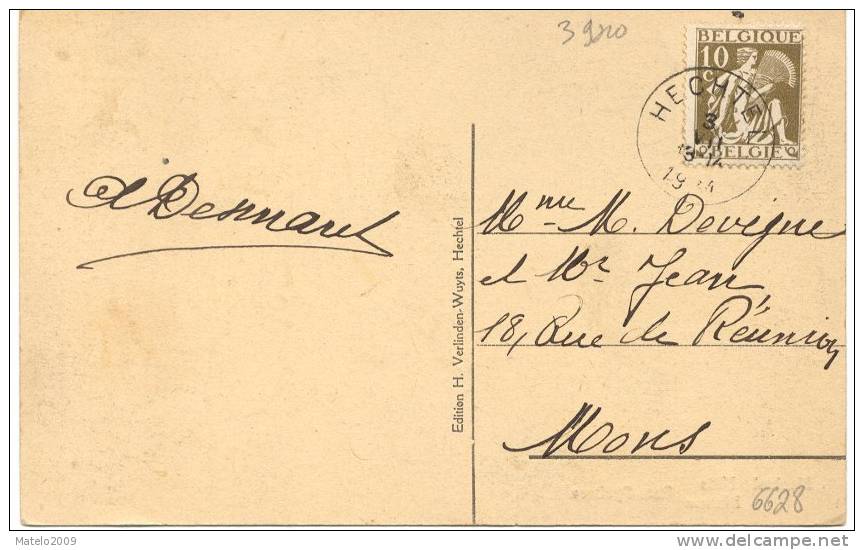 3920
BELGIQUE
10
c
BELGIË
HECHTEL
3
VII
13-14
1934
A Desmaret
Edition H. Verlinden-Wuyts, Hechtel
Mme M. Devigne
et Mr Jean,
18, Rue de Réunion
Mons
6628
Matelo2009
delcampe.net